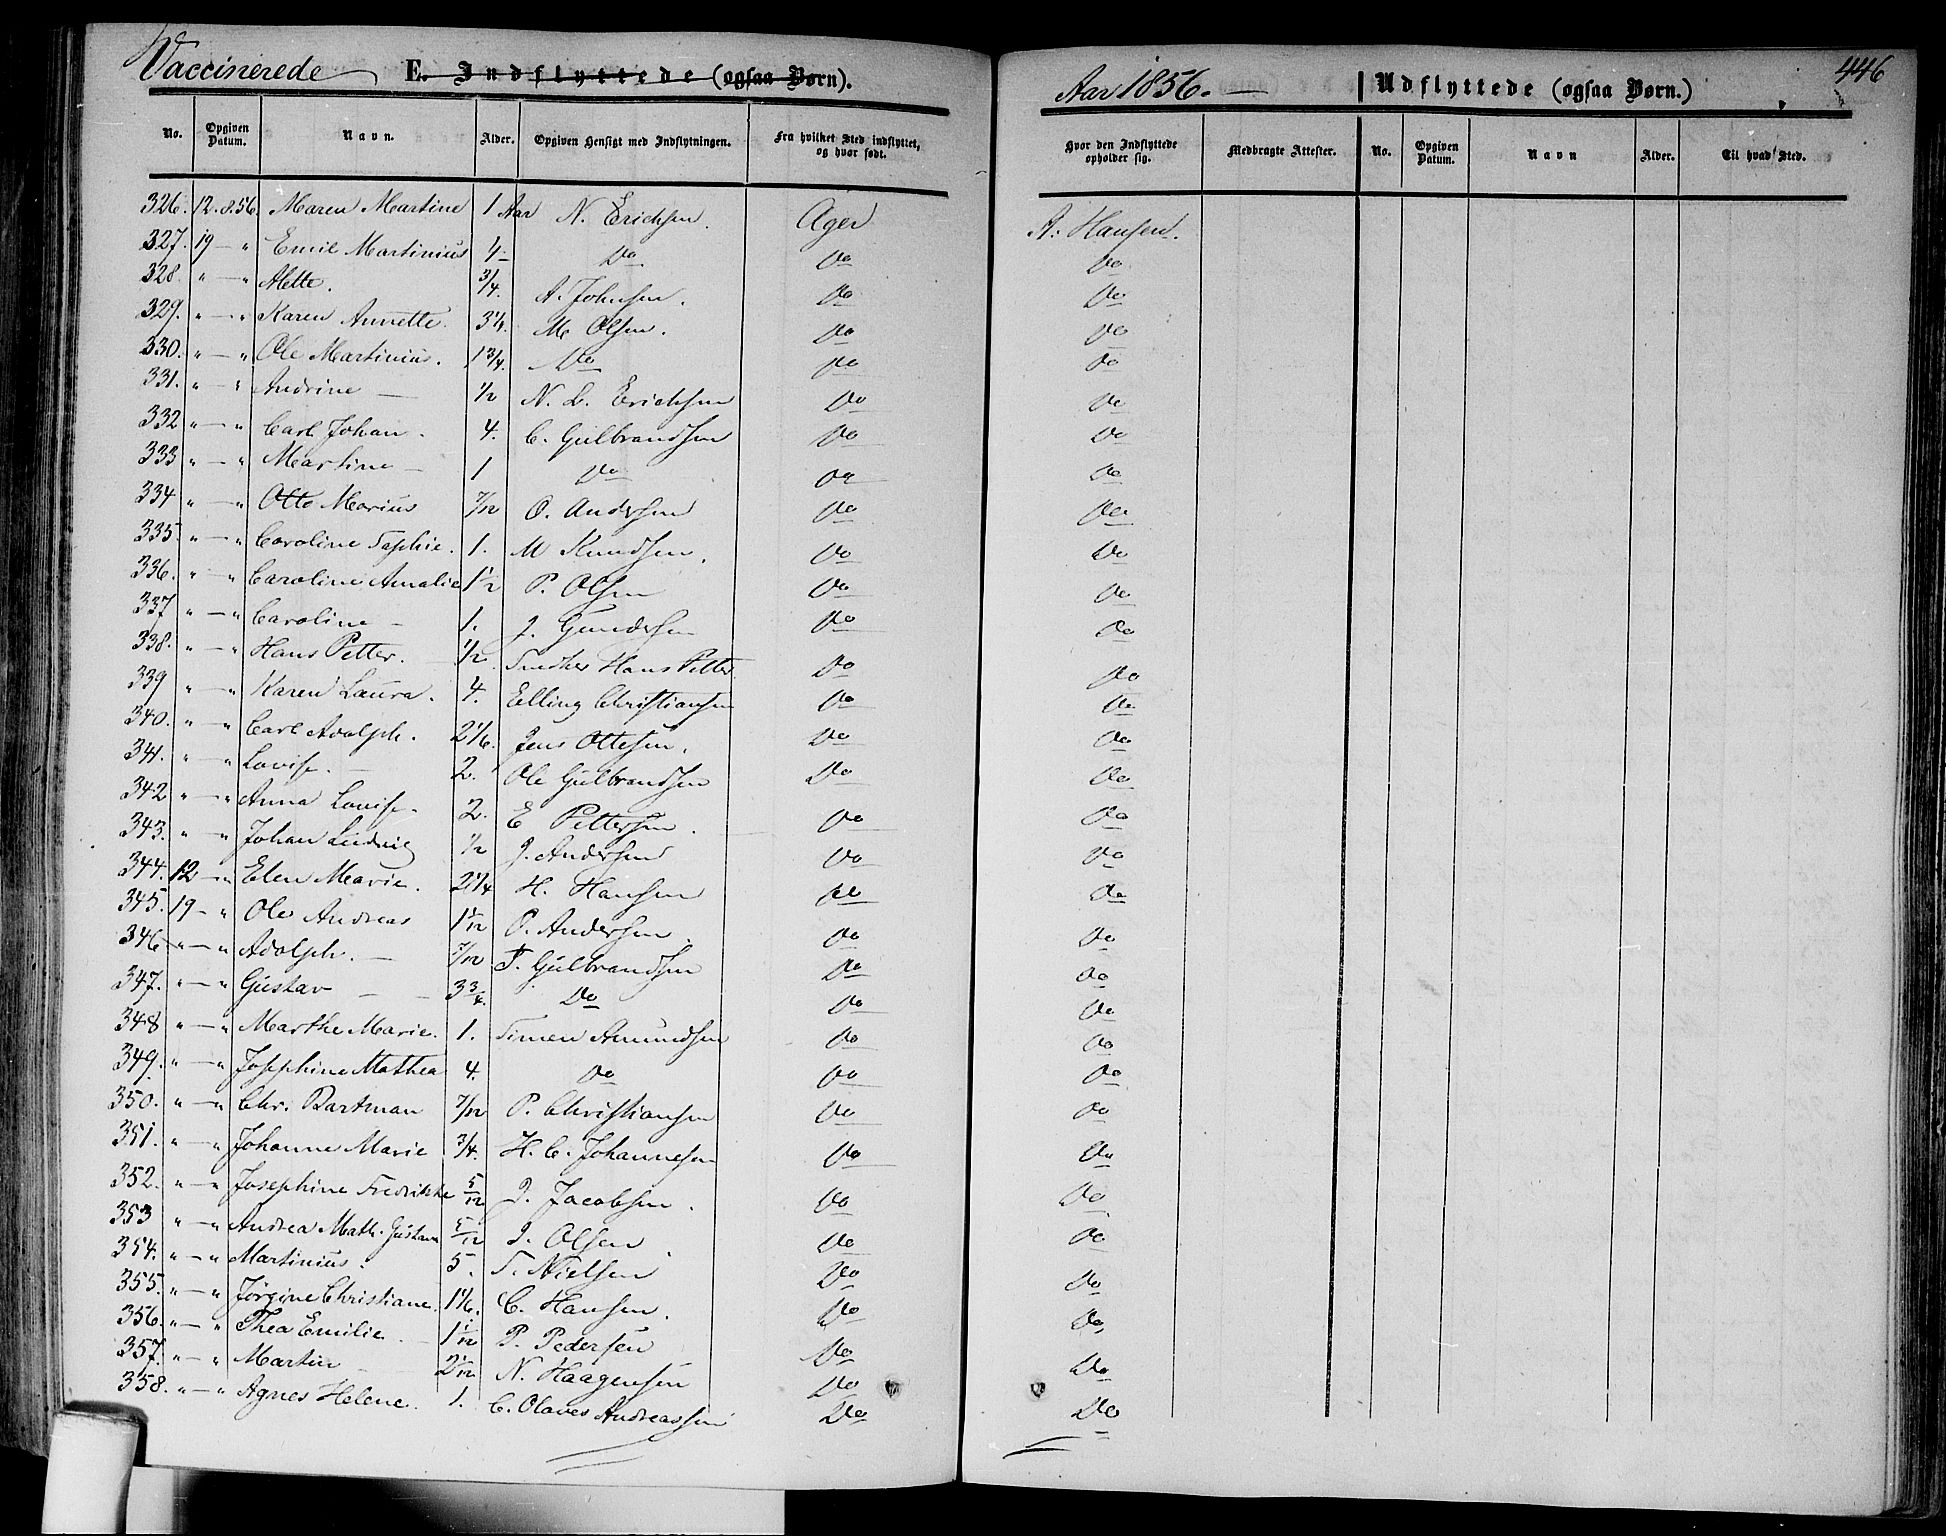 Vaccinerede E. Indflyttede (ogsaa Børn). Aar 1856. Udflyttede (ogsaa Børn.) 446
No. Opgiven Datum. Navn. Alder. Opgiven Hensigt med Indflytningen. Fra hvilket Sted indflyttet, og hvor født. Hvor den Indflyttede opholder sig. Medbragte Attester. No. Opgiven Datum. Navn Alder. Til hvad Sted.
326. 12.8.56. Maren Martine 1 Aar N. Erichsen. Ager A. Hansen.
327. 19 — " Emil Martinius 4 — Do Do Do
328. " — " Alette. 3/4. A. Johnsen. Do Do
329. " — " Karen Annette. 3 1/4. M Olsen. Do Do
330. " — " Ole Martinius. 1 3/4. Do Do Do
331. " — " Andrine — 1/2 N. L. Erichsen Do Do
332 " — " Carl Johan. 4. C. Gulbrandsen Do Do
333 " — " Martine — 1 Do Do Do
334 " — " Otto Marius 7/12 O. Andersen Do Do
335. " — " Caroline Sophie. 1. M Knudsen. Do Do
336. " — " Caroline Amalie 1 1/2 P. Olsen Do Do
337 " — " Caroline — 1. J. Gundersen Do Do
338. " — " Hans Petter. 1/2 Hans Petter Do Do
339 " — " Karen Laura. 4. Elling Christiansen Do Do
340. " — " Carl Adolph. 2 1/6. Jens Ottesen. Do Do
341. " — " Lovise. — 2. Ole Gulbrandsen Do Do
342 " — " Anna Lovise. 2. E Pettersen. Do Do
343. " — " Johan Ludvig 1/2 J. Andersen Do Do
344. 12 — " Elen Marie. 2 1/4 H. Hansen Do Do
345. 19 — " Ole Andreas 1 1/12 P. Andersen. Do Do
346 " — " Adolph. — 7/12 T. Gulbrandsen Do Do
347. " — " Gustav — 3 3/4. Do Do Do
348 " — " Marthe Marie. 1. Simen Amundsen Do Do
349. " — " Josephine Mathea 4. Do Do Do
350. " — " Chr. Bartman 7/12 P. Christiansen Do Do
351. " — " Johanne Marie 3/4. H. C. Johannesen Do Do
352. " — " Josephine Fredrikke 5/12 J. Jacobsen. Do Do
353 " — " Andrea Math. Gustava 5/12 J. Olsen. Do Do
354. " — " Martinius. 5. S. Nielsen Do Do
355. " — " Jørgine Christiane. 1 1/6. C. Hansen. Do Do
356. " — " Thea Emilie. — 1 1/12 P. Pedersen Do Do
357. " — " Martin — 2 1/12 N. Haagensen Do Do
358. " — " Agnes Helene. 1. C. Olaves Andreassen Do Do